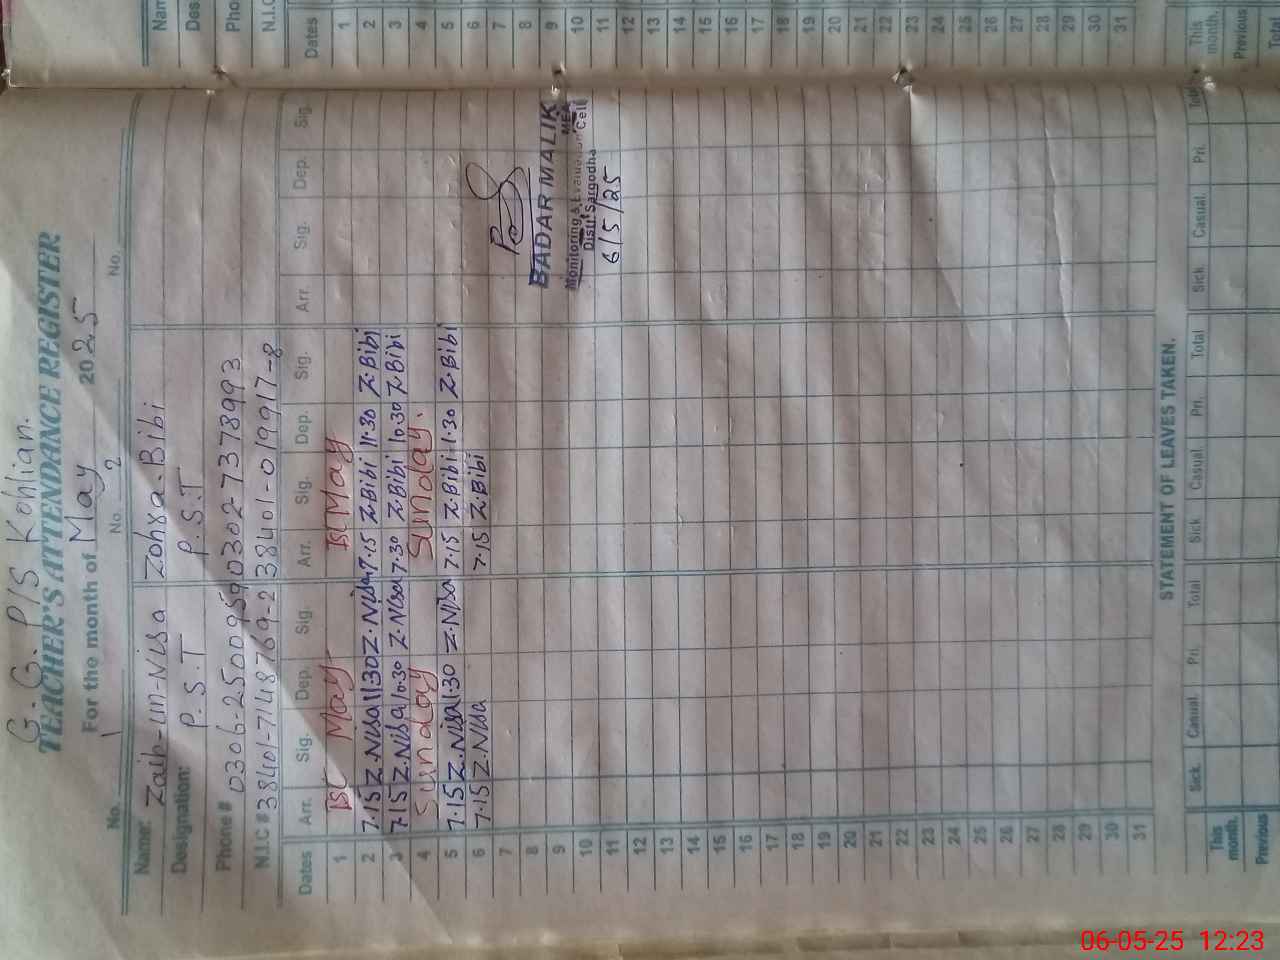 G. G. P/S Kohlian.
TEACHER'S ATTENDANCE REGISTER
For the month of May 2025
No. 1 No. 2 No.
Name: Zaib-un-Nisa Zohra.Bibi
Designation: P.S.T P.S.T
Phone# 0306-2500959 0302-7378993
N.I.C # 38401-7148769-2 38401-019917-8
Dates Arr. Sig. Dep. Sig. Arr. Sig. Dep. Sig. Arr. Sig. Dep. Sig.
1 1st May 1st May
2 7.15 Z.Nisa 11.30 Z.Nisa 7.15 Z.Bibi 11.30 Z.Bibi
3 7.15 Z.Nisa 10.30 Z.Nisa 7.30 Z.Bibi 10.30 Z.Bibi
4 Sunday Sunday.
5 7.15 Z.Nisa 1.30 Z.Nisa 7.15 Z.Bibi 1.30 Z.Bibi
6 7.15 Z.Nisa 7.15 Z.Bibi
7
8
BADAR MALIK
9
MEA
Monitoring & Evaluation Cell
10
Distt Sargodha
11 6/5/25
12
13
14
15
16
17
18
19
20
21
22
23
24
25
26
27
28
29
30
31
STATEMENT OF LEAVES TAKEN.
Sick Casual. Pri. Total Sick Casual. Pri. Total Sick Casual. Pri. Total
This month.
Previous
Nam
Des
Pho
N.I.C
Dates
1
2
3
4
5
6
7
8
9
10
11
12
13
14
15
16
17
18
19
20
21
22
23
24
25
26
27
28
29
30
31
This month.
Previous
Total
06-05-25 12:23